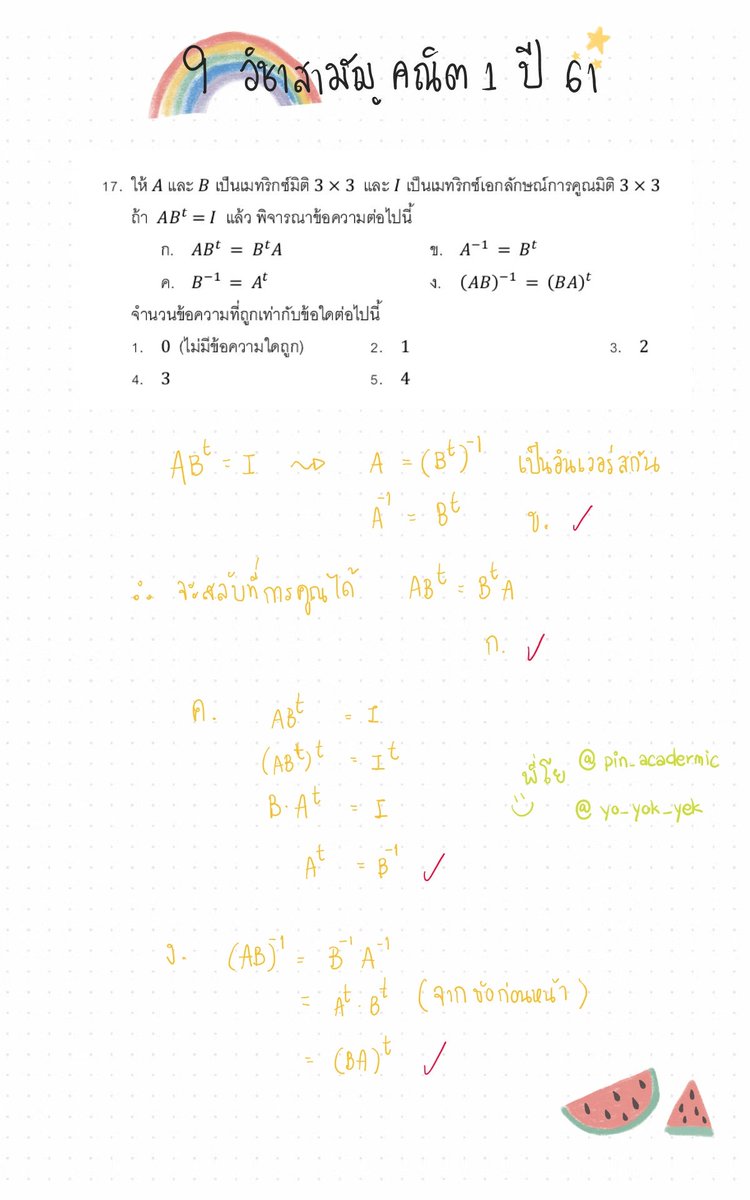 9 วิชาสามัญ คณิต 1 ปี 61
17. ให้ A และ B เป็นเมทริกซ์มิติ 3 × 3 และ I เป็นเมทริกซ์เอกลักษณ์การคูณมิติ 3 × 3
ถ้า ABᵗ = I แล้ว พิจารณาข้อความต่อไปนี้
ก. ABᵗ = BᵗA ข. A⁻¹ = Bᵗ
ค. B⁻¹ = Aᵗ ง. (AB)⁻¹ = (BA)ᵗ
จำนวนข้อความที่ถูกเท่ากับข้อใดต่อไปนี้
1. 0 (ไม่มีข้อความใดถูก) 2. 1 3. 2
4. 3 5. 4
ABᵗ = I ⇝ A = (Bᵗ)⁻¹ เป็นอินเวอร์สกัน
A⁻¹ = Bᵗ ข. ✓
∴ จะสลับที่การคูณได้ ABᵗ = BᵗA
ก. ✓
ค. ABᵗ = I
(ABᵗ)ᵗ = Iᵗ
B·Aᵗ = I
Aᵗ = B⁻¹ ✓
พี่โย @pin_acadermic
@yo_yok_yek
ง. (AB)⁻¹ = B⁻¹A⁻¹
= Aᵗ·Bᵗ (จากข้อก่อนหน้า)
= (BA)ᵗ ✓